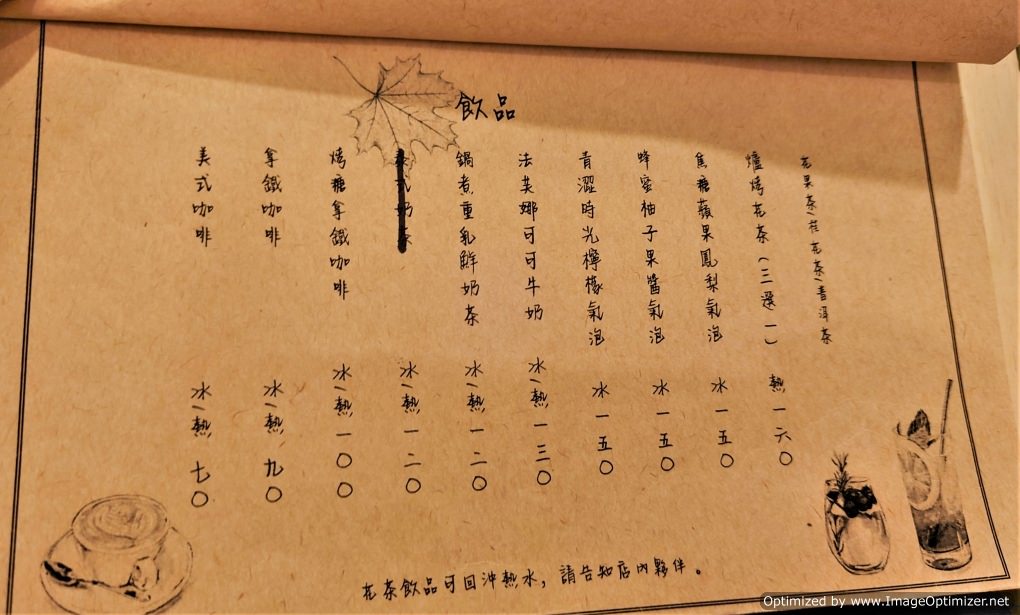 飲品
花果茶/桂花茶/普洱茶
爐烤花茶(三選一) 熱 一六〇
焦糖蘋果鳳梨氣泡 冰 一五〇
蜂蜜柚子果醬氣泡 冰 一五〇
青澀時光檸檬氣泡 冰 一五〇
法芙娜可可牛奶 冰/熱 一三〇
鍋煮重乳鮮奶茶 冰/熱 一二〇
冰/熱 一二〇
烤糖拿鐵咖啡 冰/熱 一〇〇
拿鐵咖啡 冰/熱 九〇
美式咖啡 冰/熱 七〇
花茶飲品可回沖熱水,請告知店內夥伴。
Optimized by www.ImageOptimizer.net